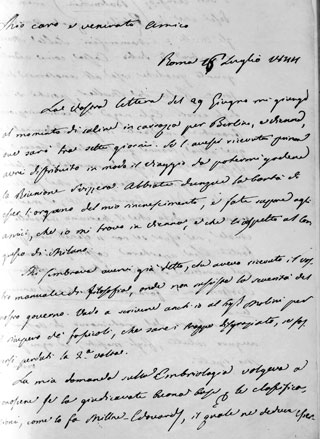 Mio caro e venerato Amico
Roma 16 Luglio 1844
La Vostra lettera del 29 Giugno mi giunge
al momento di salire in carrozza per Berlino, e Vienna,
ove sarò tra sette giorni. Se l'avessi ricevuta prima
avrei distribuito in modo il viaggio da potermi godere
la Riunione Svizzera. Abbiate dunque la bontà di
esser l'organo del mio rincrescimento, e fate sapere agli
amici, che io mi trovo in Vienna, e che li aspetto al Con
gresso di Milano.
Mi sembrava avervi già detto, che avevo ricevuto il vos
tro manuale di filosofia, onde non
vostro governo. Vado a scrivere anch'io al Sigr Molini per
de' fascicoli, che sarei troppo disgraziato, se fos
sero perduti la 2ª volta.
La mia domanda sulla Embriologia volgeva a
sapere se la giudicavate buona base per le classifica
zioni, come lo fa Milne Edwards, il quale ne deduce